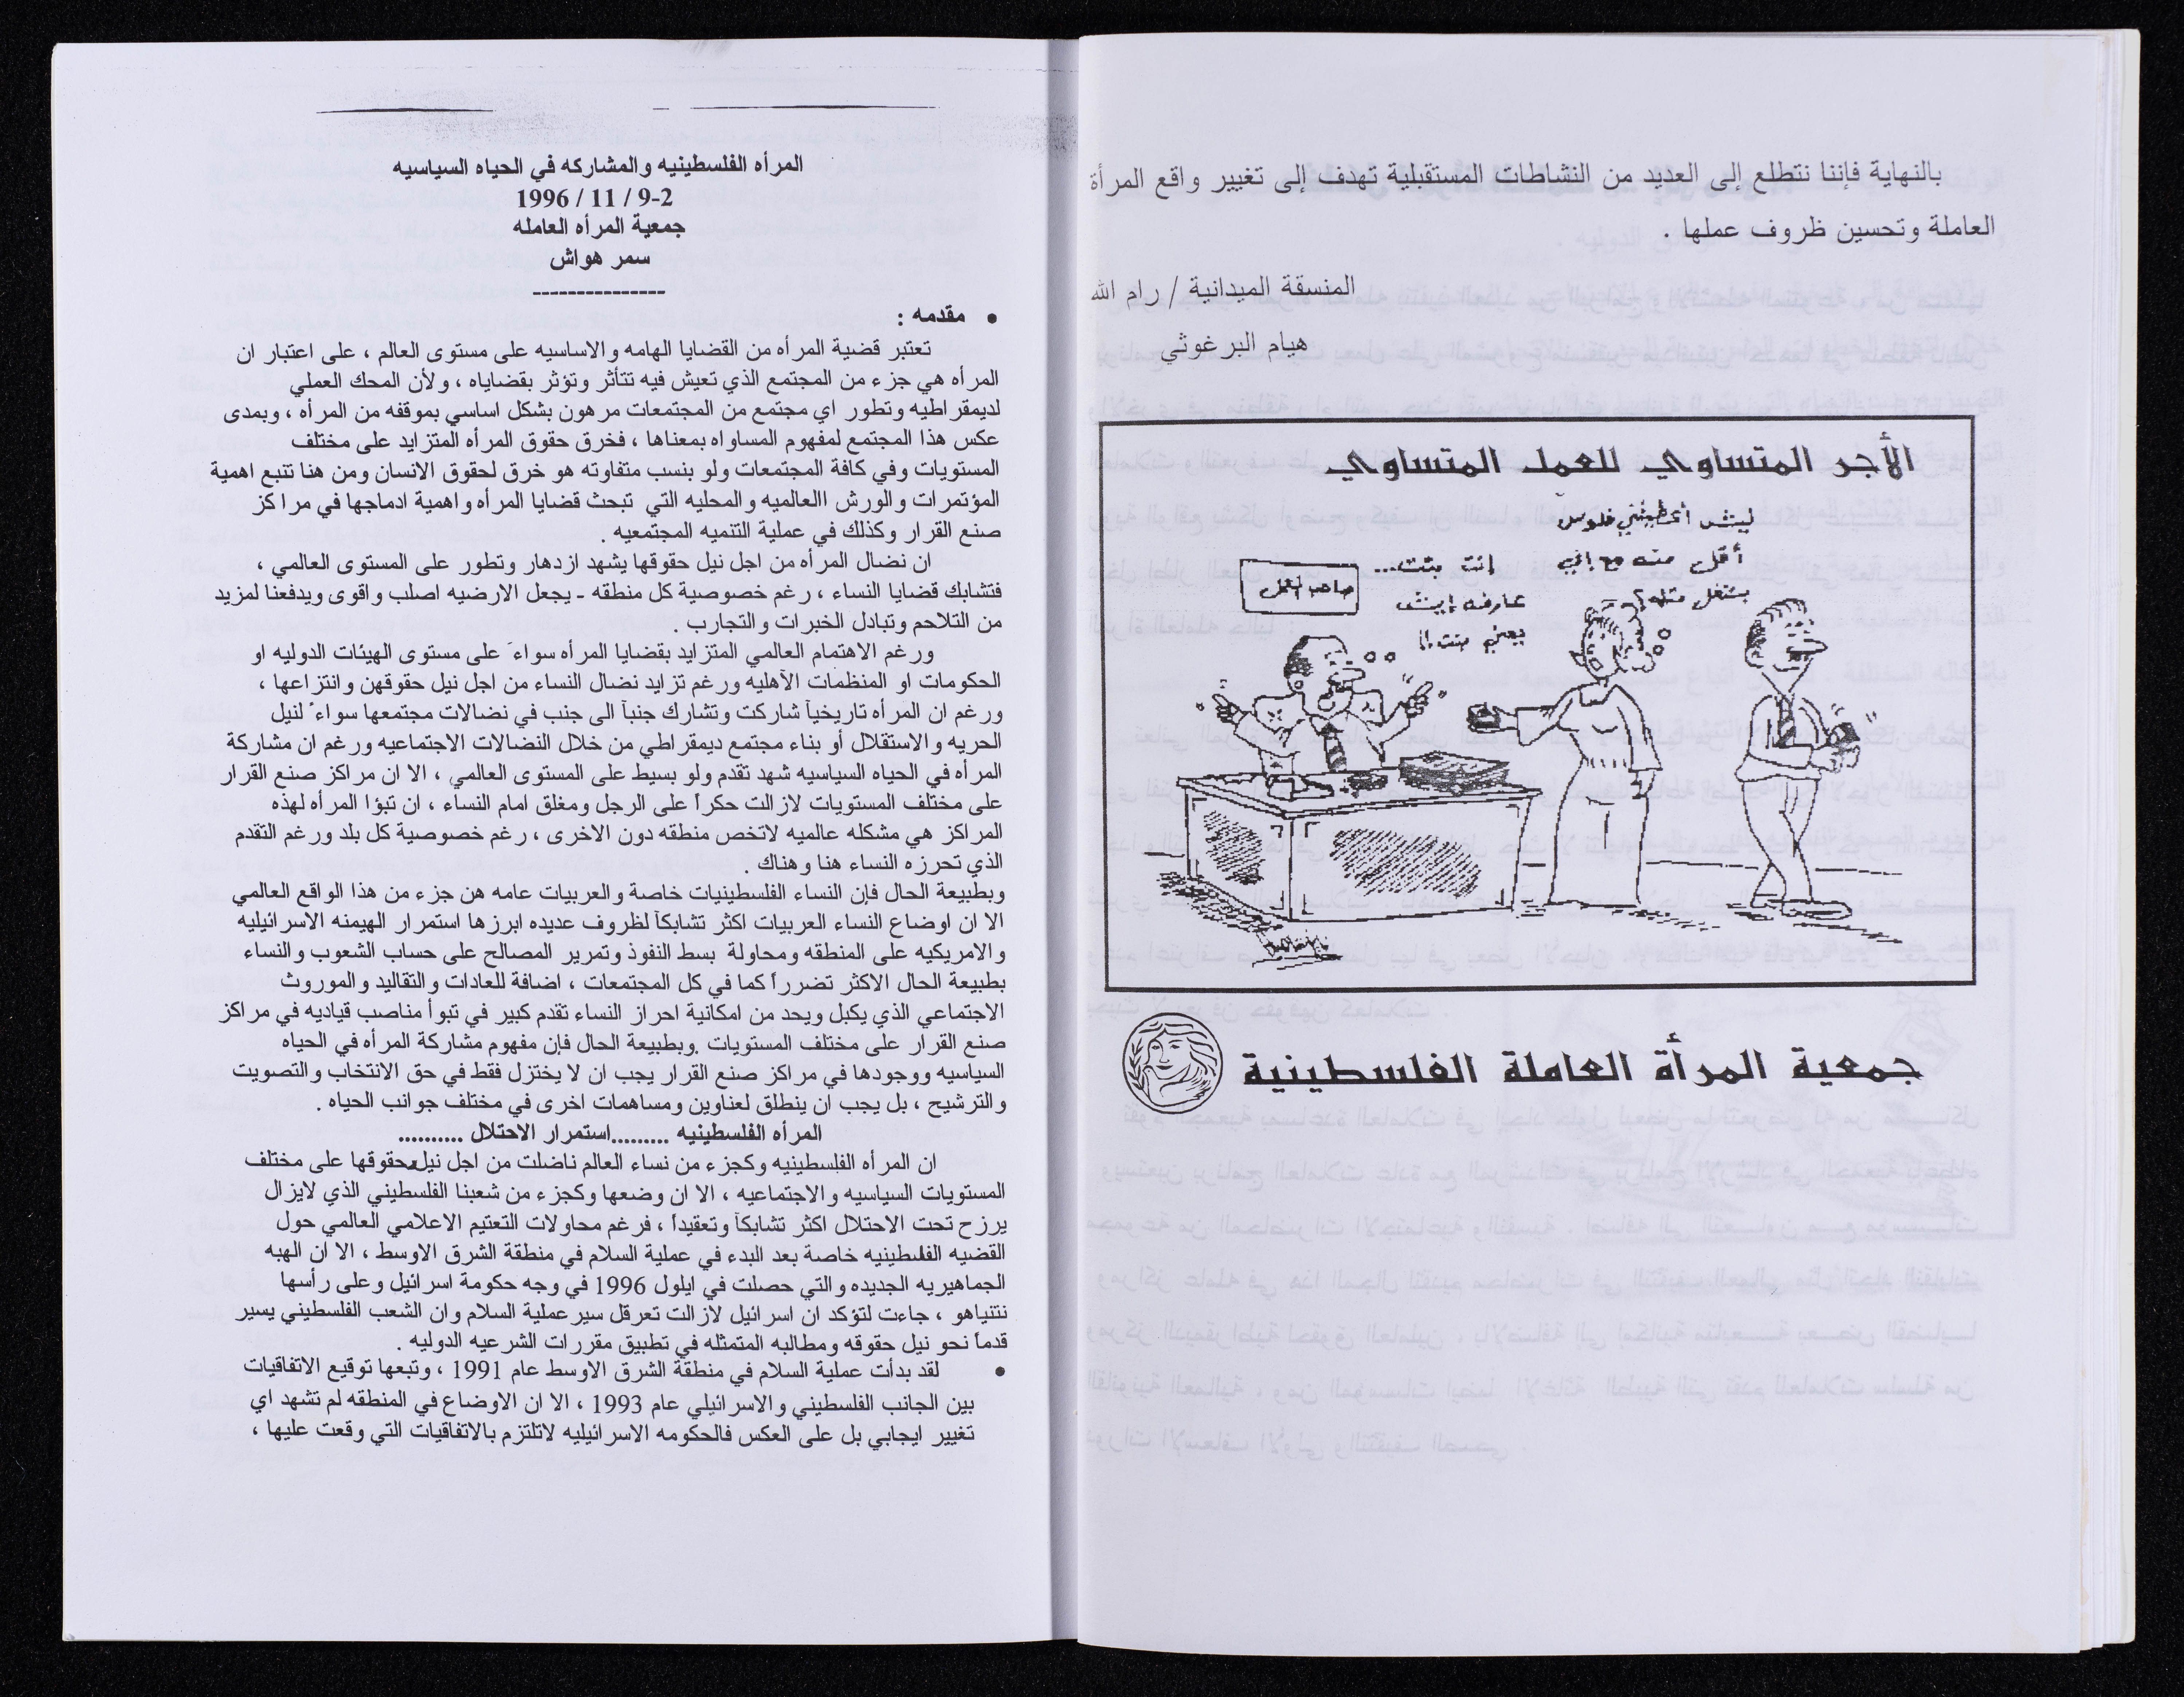 بالنهاية فإننا نتطلع إلى العديد من النشاطات المستقبلية تهدف إلى تغيير واقع المرأة
العاملة وتحسين ظروف عملها .
المنسقة الميدانية / رام الله
هيام البرغوثي
الأجر المتساوي للعمل المتساوي
ليش أعطيتني فلوس
أقل منه مع إني
بشتغل مثله؟
إنت بنت...
عارفه إيش
يعني بنت!!
صاحب العمل
جمعية المرأة العاملة الفلسطينية
المرأه الفلسطينيه والمشاركه في الحياه السياسيه
1996 / 11 / 9-2
جمعية المرأه العامله
سمر هواش
---------------
• مقدمه :
تعتبر قضية المرأه من القضايا الهامه والاساسيه على مستوى العالم ، على اعتبار ان
المرأه هي جزء من المجتمع الذي تعيش فيه تتأثر وتؤثر بقضاياه ، ولأن المحك العملي
لديمقراطيه وتطور اي مجتمع من المجتمعات مرهون بشكل اساسي بموقفه من المرأه ، وبمدى
عكس هذا المجتمع لمفهوم المساواه بمعناها ، فخرق حقوق المرأه المتزايد على مختلف
المستويات وفي كافة المجتمعات ولو بنسب متفاوته هو خرق لحقوق الانسان ومن هنا تنبع اهمية
المؤتمرات والورش االعالميه والمحليه التي تبحث قضايا المرأه واهمية ادماجها في مراكز
صنع القرار وكذلك في عملية التنميه المجتمعيه .
ان نضال المرأه من اجل نيل حقوقها يشهد ازدهار وتطور على المستوى العالمي ،
فتشابك قضايا النساء ، رغم خصوصية كل منطقه - يجعل الارضيه اصلب واقوى ويدفعنا لمزيد
من التلاحم وتبادل الخبرات والتجارب .
ورغم الاهتمام العالمي المتزايد بقضايا المرأه سواءً على مستوى الهيئات الدوليه او
الحكومات او المنظمات الآهليه ورغم تزايد نضال النساء من اجل نيل حقوقهن وانتزاعها ،
ورغم ان المرأه تاريخياً شاركت وتشارك جنباً الى جنب في نضالات مجتمعها سواءً لنيل
الحريه والاستقلال أو بناء مجتمع ديمقراطي من خلال النضالات الاجتماعيه ورغم ان مشاركة
المرأه في الحياه السياسيه شهد تقدم ولو بسيط على المستوى العالمي ، الا ان مراكز صنع القرار
على مختلف المستويات لازالت حكراً على الرجل ومغلق امام النساء ، ان تبؤا المرأه لهذه
المراكز هي مشكله عالميه لاتخص منطقه دون الاخرى ، رغم خصوصية كل بلد ورغم التقدم
الذي تحرزه النساء هنا وهناك .
وبطبيعة الحال فإن النساء الفلسطينيات خاصة والعربيات عامه هن جزء من هذا الواقع العالمي
الا ان اوضاع النساء العربيات اكثر تشابكاً لظروف عديده ابرزها استمرار الهيمنه الاسرائيليه
والامريكيه على المنطقه ومحاولة بسط النفوذ وتمرير المصالح على حساب الشعوب والنساء
بطبيعة الحال الاكثر تضرراً كما في كل المجتمعات ، اضافة للعادات والتقاليد والموروث
الاجتماعي الذي يكبل ويحد من امكانية احراز النساء تقدم كبير في تبوأ مناصب قياديه في مراكز
صنع القرار على مختلف المستويات .وبطبيعة الحال فإن مفهوم مشاركة المرأه في الحياه
السياسيه ووجودها في مراكز صنع القرار يجب ان لا يختزل فقط في حق الانتخاب والتصويت
والترشيح ، بل يجب ان ينطلق لعناوين ومساهمات اخرى في مختلف جوانب الحياه .
المرأه الفلسطينيه .........استمرار الاحتلال ..........
ان المرأه الفلسطينيه وكجزء من نساء العالم ناضلت من اجل نيل حقوقها على مختلف
المستويات السياسيه والاجتماعيه ، الا ان وضعها وكجزء من شعبنا الفلسطيني الذي لايزال
يرزح تحت الاحتلال اكثر تشابكاً وتعقيداً ، فرغم محاولات التعتيم الاعلامي العالمي حول
القضيه الفلسطينيه خاصة بعد البدء في عملية السلام في منطقة الشرق الاوسط ، الا ان الهبه
الجماهيريه الجديده والتي حصلت في ايلول 1996 في وجه حكومة اسرائيل وعلى رأسها
نتنياهو ، جاءت لتؤكد ان اسرائيل لازالت تعرقل سير عملية السلام وان الشعب الفلسطيني يسير
قدماً نحو نيل حقوقه ومطالبه المتمثله في تطبيق مقررات الشرعيه الدوليه .
• لقد بدأت عملية السلام في منطقة الشرق الاوسط عام 1991 ، وتبعها توقيع الاتفاقيات
بين الجانب الفلسطيني والاسرائيلي عام 1993 ، الا ان الاوضاع في المنطقه لم تشهد اي
تغيير ايجابي بل على العكس فالحكومه الاسرائيليه لاتلتزم بالاتفاقيات التي وقعت عليها ،